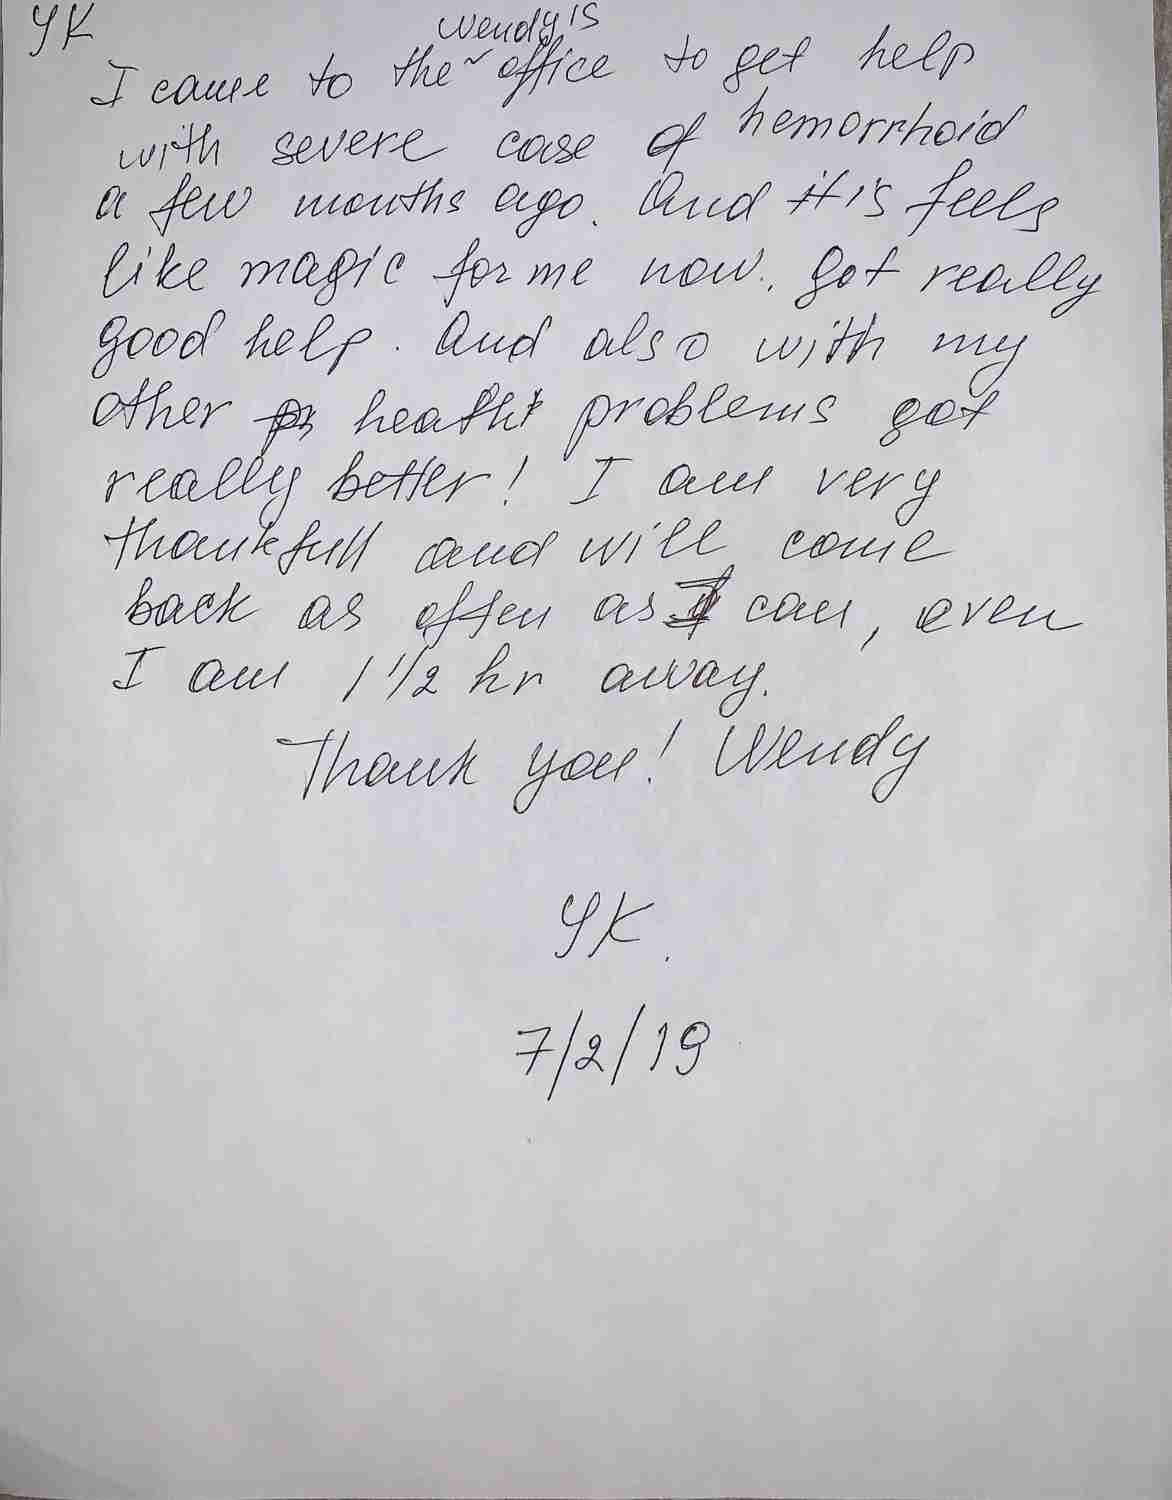 YK
Wendy's
I came to the office to get help
with severe case of hemorrhoid
a few months ago. And it is feels
like magic for me now. Got really
good help. And also with my
other health problems got
really better! I am very
thankfull and will come
back as often as I can, even
I am 1 1/2 hr away.
Thank you! Wendy
YK.
7/2/19